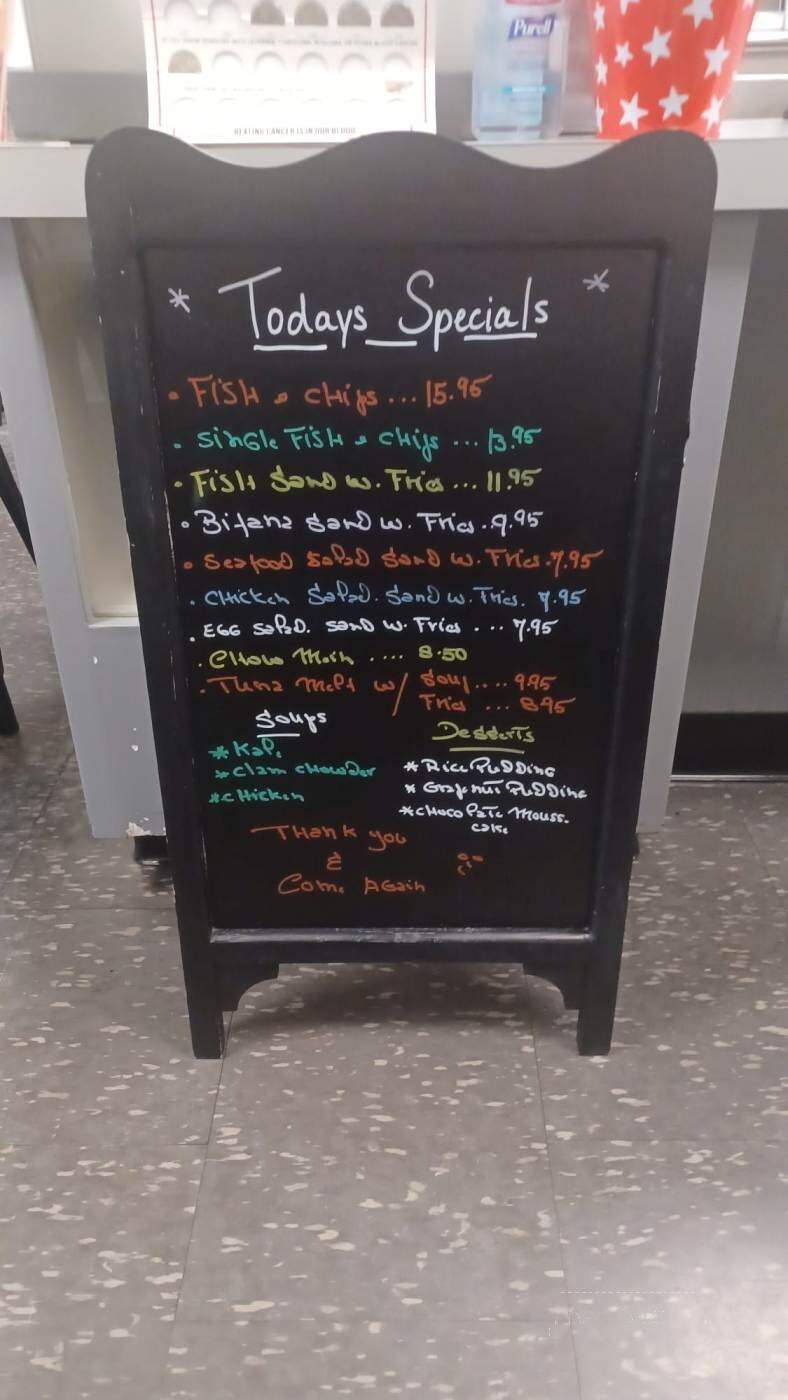 BEATING CANCER IS IN OUR BLOOD.
Purell
* Todays Specials *
• FISH & CHips ... 15.95
• Single FISH & CHips ... 13.95
• FISH Sand w. Fries ... 11.95
• Bifana Sand w. Fries . 9.95
• Seafood Salad Sand w. Fries . 7.95
• CHicken Salad. Sand w. Fries. 7.95
• EGG Salad. Sand w. Fries ... 7.95
• CHow Mein .... 8.50
• Tuna Melt w/ Soup .... 9.95
Fries ... 8.95
Soups
* Kale
* Clam CHowder
* CHicken
Desserts
* Rice PuDDing
* GrapNut PuDDing
* CHocolate Mouss.
Cake
THank you
&
Come AGain